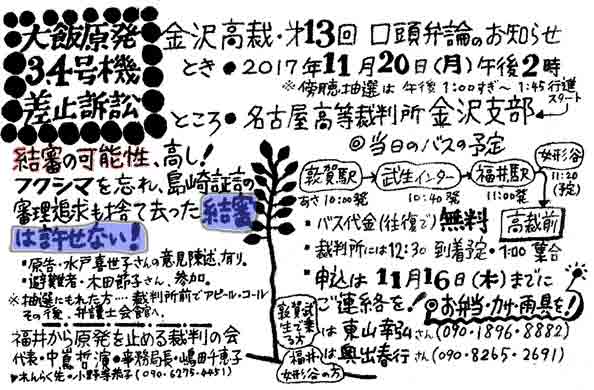 大飯原発
3.4号機
差止訴訟
金沢高裁・才13回 口頭弁論のお知らせ
とき●2017年11月20日(月)午後2時
※傍聴抽選は 午後1:00すぎ~1:45行進スタート
ところ●名古屋高等裁判所金沢支部
結審の可能性、高し!
フクシマを忘れ、島崎証言の
審理追求も捨て去った結審
は許せない!
・原告・水戸喜世子さんの意見陳述、有り。
・避難者・木田節子さん、参加。
※抽選にもれた方…裁判所前でアピール・コール
その後、弁護士会館へ。
福井から原発を止める裁判の会
代表・中嶌哲演●事務局長・嶋田千恵子
▷れんらく先・小野寺恭子(090-6275-4451)
◎当日のバスの予定
敦賀駅→武生インター→福井駅→女形谷
あさ10:00発 10:40発 11:00発 11:20(予定)
高裁前
・バス代金(往復で)無料
・裁判所には12:30到着予定・1:00集合
・申込は11月16日(木)までに
ご連絡を!◎お弁当・カサ・雨具を!
敦賀武生で乗る方は東山幸弘さん(090・1896・8882)
福井女形谷の方は奥出春行さん(090・8265・2691)